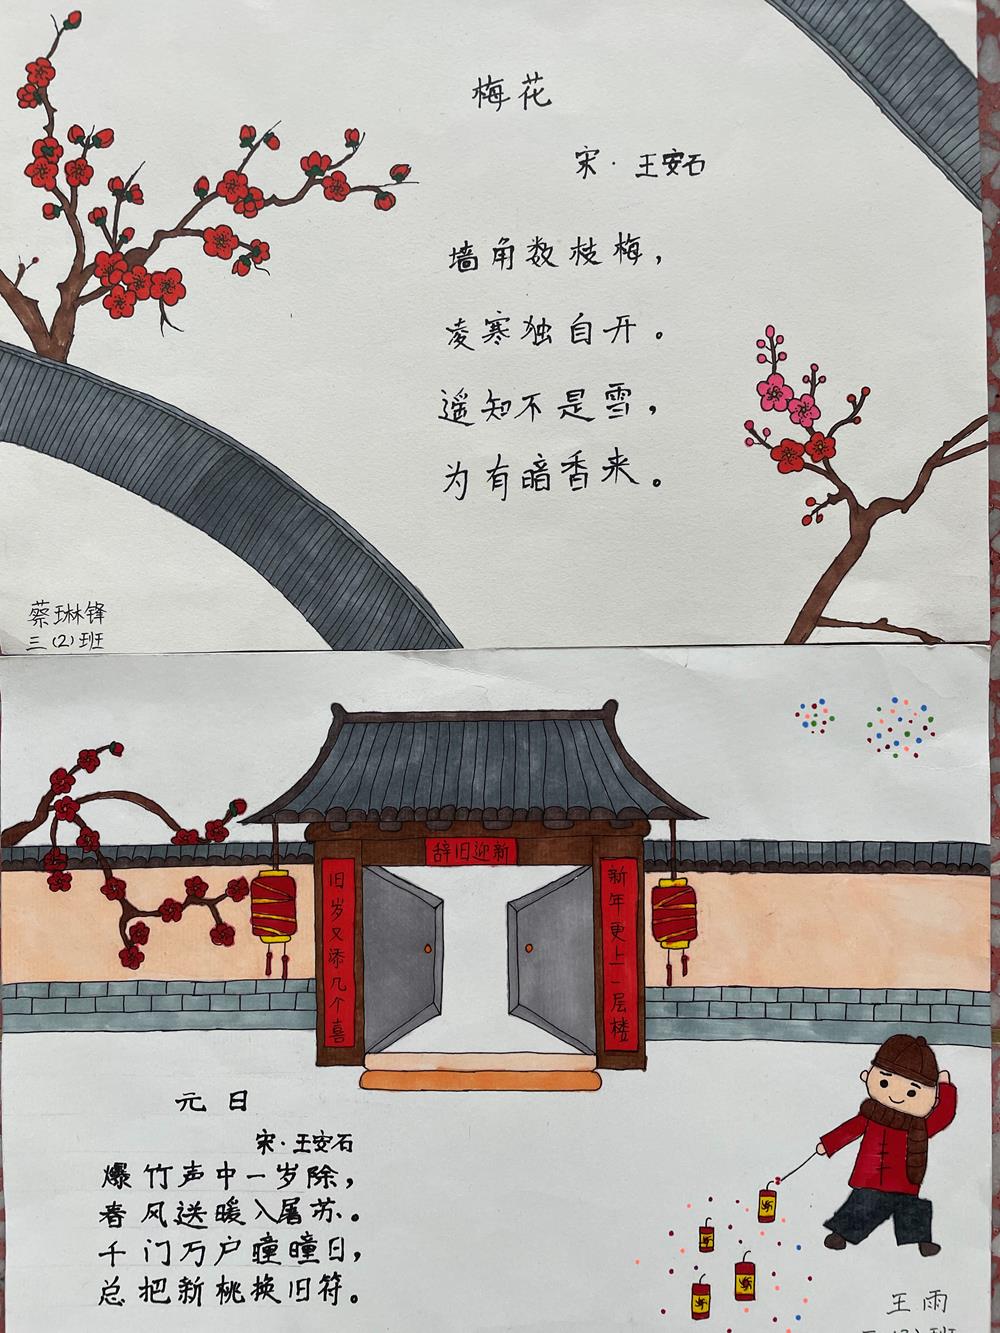 梅花
宋·王安石
墙角数枝梅，
凌寒独自开。
遥知不是雪，
为有暗香来。
蔡琳锋
三（2）班
辞旧迎新
旧岁又添几个喜
新年更上一层楼
元日
宋·王安石
爆竹声中一岁除，
春风送暖入屠苏。
千门万户曈曈日，
总把新桃换旧符。
王雨